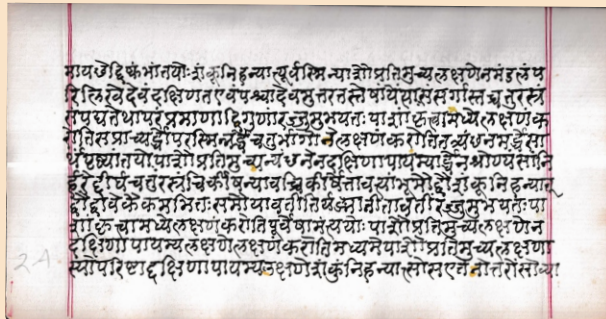 मायछेद्विष्कंभांतयोः शंकू निहन्यात्पूर्वस्मिन्पाशौ प्रतिमुच्य लक्षणेन मंडलं प
रिलिखेदेवं दक्षिणत एवं पश्चादेवमुत्तरतस्तेषां येंत्याः संसर्गास्तच्चतुरस्रं
संपद्यतेथापरं प्रमाणाद्द्विगुणां रज्जुमुभयतः पाशां कृत्वा मध्ये लक्षणं क
रोति स प्राच्यर्द्धोपरस्मिन्नर्द्धे चतुर्भागोने लक्षणं करोति तन्न्यंछनमर्द्धेंसा
र्थं पृष्ठ्यांतयोः पाशौ प्रतिमुच्य न्यंछनेन दक्षिणापायम्यार्द्धेन श्रोण्यंसान्नि
र्हरेद्दीर्घचतुरस्रं चिकीर्षन्यावच्चिकीर्षेत्तावत्यां भूमौ द्वौ शंकू निहन्यात्
द्वौ द्वावेकैकमभितः समौ यावती तिर्यङ्मानी तावतीं रज्जुमुभयतः पा
शां कृत्वा मध्ये लक्षणं करोति पूर्वेषामंत्ययोः पाशौ प्रतिमुच्य लक्षणेन
दक्षिणापायम्य लक्षणे लक्षणं करोति मध्यमे पाशौ प्रतिमुच्य लक्षणा
स्योपरिष्टाद्दक्षिणापायम्य लक्षणे शंकुं निहन्यात्सोंस एतेनोत्तरोंसो व्या